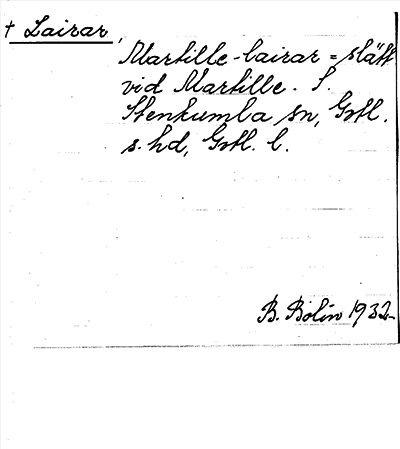 † Lairar,
Martille-lairar = slätt
vid Martille. S.
Stenkumla sn, Gotl.
s. hd, Gotl. l.
B. Bolin 1932